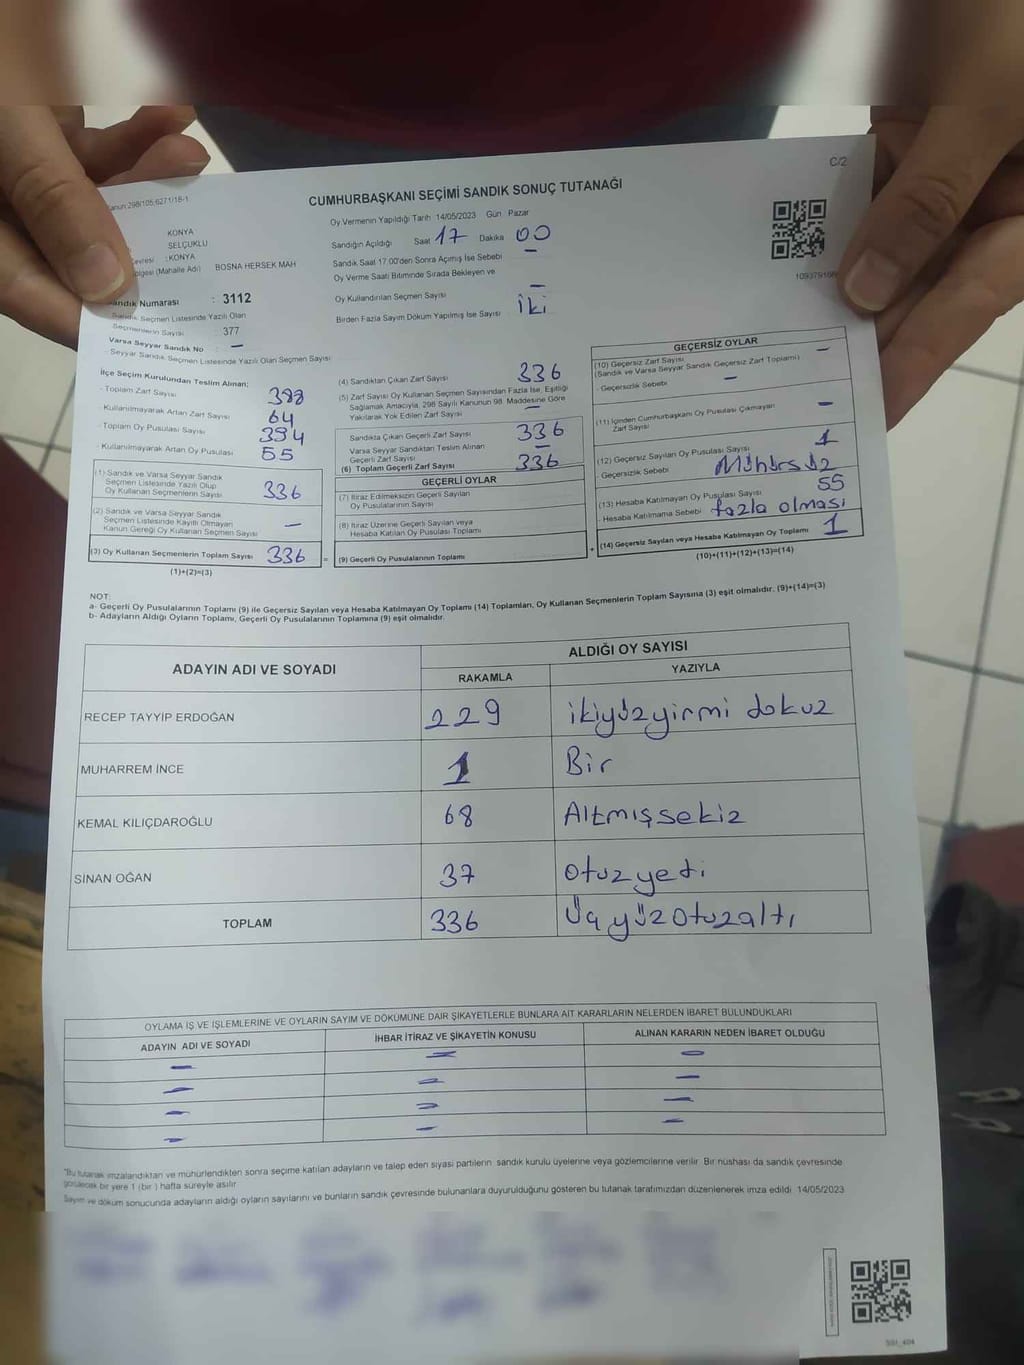 C/2
Kanun:298/105,6271/18-1
CUMHURBAŞKANI SEÇİMİ SANDIK SONUÇ TUTANAĞI
KONYA
SELÇUKLU
Çevresi : KONYA
Bölgesi (Mahalle Adı) BOSNA HERSEK MAH
Sandık Numarası : 3112
Sandık Seçmen Listesinde Yazılı Olan
Seçmenlerin Sayısı : 377
Varsa Seyyar Sandık No : –
- Seyyar Sandık Seçmen Listesinde Yazılı Olan Seçmen Sayısı
Oy Vermenin Yapıldığı Tarih 14/05/2023 Gün Pazar
Sandığın Açıldığı Saat 17 Dakika 00
Sandık Saat 17.00'den Sonra Açımış İse Sebebi –
Oy Verme Saati Bitiminde Sırada Bekleyen ve
Oy Kullandırılan Seçmen Sayısı –
Birden Fazla Sayım Döküm Yapılmış İse Sayısı iki
İlçe Seçim Kurulundan Teslim Alınan;
- Toplam Zarf Sayısı
- Kullanılmayarak Artan Zarf Sayısı 64
- Toplam Oy Pusulası Sayısı 394
- Kullanılmayarak Artan Oy Pusulası 55
(1) Sandık ve Varsa Seyyar Sandık
Seçmen Listesinde Yazılı Olup
Oy Kullanan Seçmenlerin Sayısı 336
(2) Sandık ve Varsa Seyyar Sandık
Seçmen Listesinde Kayıtlı Olmayan
Kanun Gereği Oy Kullanan Seçmen Sayısı –
(3) Oy Kullanan Seçmenlerin Toplam Sayısı 336 =
(1)+(2)=(3)
(4) Sandıktan Çıkan Zarf Sayısı 336
(5) Zarf Sayısı Oy Kullanan Seçmen Sayısından Fazla İse, Eşitliği
Sağlamak Amacıyla, 298 Sayılı Kanunun 98. Maddesine Göre
Yakılarak Yok Edilen Zarf Sayısı –
Sandıkta Çıkan Geçerli Zarf Sayısı 336
Varsa Seyyar Sandıktan Teslim Alınan
Geçerli Zarf Sayısı –
(6) Toplam Geçerli Zarf Sayısı 336
GEÇERLİ OYLAR
(7) İtiraz Edilmeksizin Geçerli Sayılan
Oy Pusulalarının Sayısı
(8) İtiraz Üzerine Geçerli Sayılan veya
Hesaba Katılan Oy Pusulası Toplamı
(9) Geçerli Oy Pusulalarının Toplamı +
GEÇERSİZ OYLAR
(10) Geçersiz Zarf Sayısı –
(Sandık ve Varsa Seyyar Sandık Geçersiz Zarf Toplamı)
- Geçersizlik Sebebi –
(11) İçinden Cumhurbaşkanı Oy Pusulası Çıkmayan
Zarf Sayısı –
(12) Geçersiz Sayılan Oy Pusulası Sayısı 1
- Geçersizlik Sebebi Mühürsüz
(13) Hesaba Katılmayan Oy Pusulası Sayısı 55
- Hesaba Katılmama Sebebi fazla olması
(14) Geçersiz Sayılan veya Hesaba Katılmayan Oy Toplamı 1
(10)+(11)+(12)+(13)=(14)
NOT:
a- Geçerli Oy Pusulalarının Toplamı (9) ile Geçersiz Sayılan veya Hesaba Katılmayan Oy Toplamı (14) Toplamları, Oy Kullanan Seçmenlerin Toplam Sayısına (3) eşit olmalıdır. (9)+(14)=(3)
b- Adayların Aldığı Oyların Toplamı, Geçerli Oy Pusulalarının Toplamına (9) eşit olmalıdır.
ADAYIN ADI VE SOYADI
ALDIĞI OY SAYISI
RAKAMLA YAZIYLA
RECEP TAYYİP ERDOĞAN 229 ikiyüzyirmi dokuz
MUHARREM İNCE 1 Bir
KEMAL KILIÇDAROĞLU 68 Altmışsekiz
SİNAN OĞAN 37 otuzyedi
TOPLAM 336 Üçyüzotuzaltı
OYLAMA İŞ VE İŞLEMLERİNE VE OYLARIN SAYIM VE DÖKÜMÜNE DAİR ŞİKAYETLERLE BUNLARA AİT KARARLARIN NELERDEN İBARET BULUNDUKLARI
ADAYIN ADI VE SOYADI İHBAR İTİRAZ VE ŞİKAYETİN KONUSU ALINAN KARARIN NEDEN İBARET OLDUĞU
– – –
– – –
– – –
– – –
"Bu tutanak imzalandıktan ve mühürlendikten sonra seçime katılan adayların ve talep eden siyasi partilerin sandık kurulu üyelerine veya gözlemcilerine verilir. Bir nüshası da sandık çevresinde
görülecek bir yere 1 (bir ) hafta süreyle asılır
Sayım ve döküm sonucunda adayların aldığı oyların sayılarını ve bunların sandık çevresinde bulunanlara duyurulduğunu gösteren bu tutanak tarafımızdan düzenlenerek imza edildi 14/05/2023